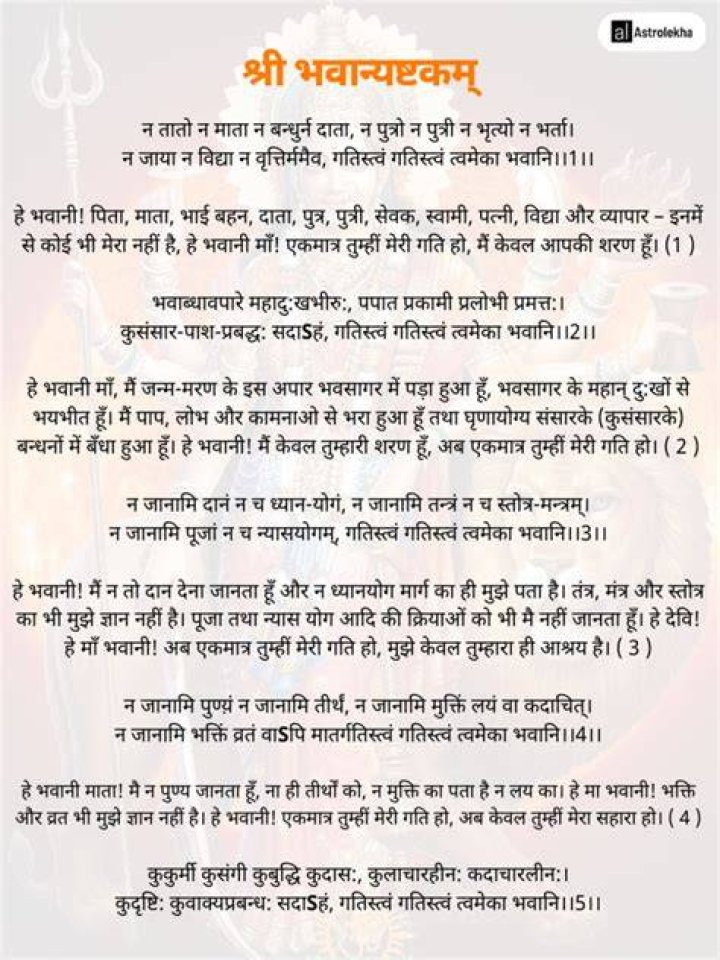 al Astrolekha
श्री भवान्यष्टकम्
न तातो न माता न बन्धुर्न दाता, न पुत्रो न पुत्री न भृत्यो न भर्ता।
न जाया न विद्या न वृत्तिर्ममैव, गतिस्त्वं गतिस्त्वं त्वमेका भवानि।।1।।
हे भवानी! पिता, माता, भाई बहन, दाता, पुत्र, पुत्री, सेवक, स्वामी, पत्नी, विद्या और व्यापार – इनमें
से कोई भी मेरा नहीं है, हे भवानी माँ! एकमात्र तुम्हीं मेरी गति हो, मैं केवल आपकी शरण हूँ। (1 )
भवाब्धावपारे महादु:खभीरु:, पपात प्रकामी प्रलोभी प्रमत्त:।
कुसंसार-पाश-प्रबद्ध: सदाSहं, गतिस्त्वं गतिस्त्वं त्वमेका भवानि।।2।।
हे भवानी माँ, मैं जन्म-मरण के इस अपार भवसागर में पड़ा हुआ हूँ, भवसागर के महान् दु:खों से
भयभीत हूँ। मैं पाप, लोभ और कामनाओ से भरा हुआ हूँ तथा घृणायोग्य संसारके (कुसंसारके)
बन्धनों में बँधा हुआ हूँ। हे भवानी! मैं केवल तुम्हारी शरण हूँ, अब एकमात्र तुम्हीं मेरी गति हो। ( 2 )
न जानामि दानं न च ध्यान-योगं, न जानामि तन्त्रं न च स्तोत्र-मन्त्रम्।
न जानामि पूजां न च न्यासयोगम्, गतिस्त्वं गतिस्त्वं त्वमेका भवानि।।3।।
हे भवानी! मैं न तो दान देना जानता हूँ और न ध्यानयोग मार्ग का ही मुझे पता है। तंत्र, मंत्र और स्तोत्र
का भी मुझे ज्ञान नहीं है। पूजा तथा न्यास योग आदि की क्रियाओं को भी मै नहीं जानता हूँ। हे देवि!
हे माँ भवानी! अब एकमात्र तुम्हीं मेरी गति हो, मुझे केवल तुम्हारा ही आश्रय है। ( 3 )
न जानामि पुण्य़ं न जानामि तीर्थं, न जानामि मुक्तिं लयं वा कदाचित्।
न जानामि भक्तिं व्रतं वाSपि मातर्गतिस्त्वं गतिस्त्वं त्वमेका भवानि।।4।।
हे भवानी माता! मै न पुण्य जानता हूँ, ना ही तीर्थों को, न मुक्ति का पता है न लय का। हे मा भवानी! भक्ति
और व्रत भी मुझे ज्ञान नहीं है। हे भवानी! एकमात्र तुम्हीं मेरी गति हो, अब केवल तुम्हीं मेरा सहारा हो। ( 4 )
कुकुर्मी कुसंगी कुबुद्धि कुदास:, कुलाचारहीन: कदाचारलीन:।
कुदृष्टि: कुवाक्यप्रबन्ध: सदाSहं, गतिस्त्वं गतिस्त्वं त्वमेका भवानि।।5।।